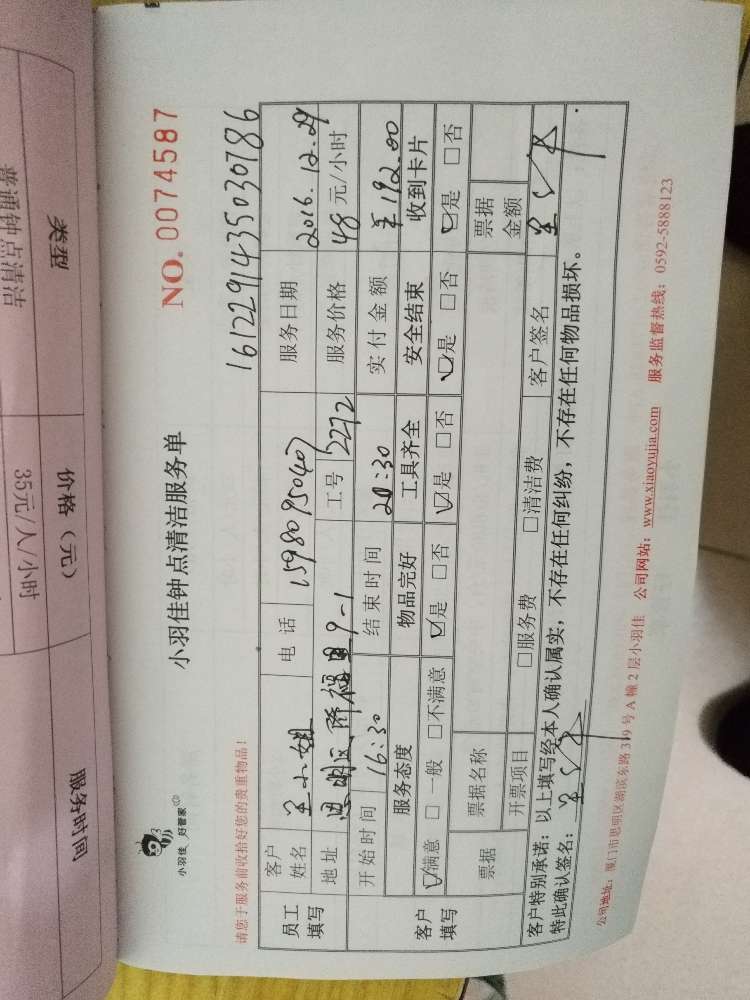 类型
价格（元）
服务时间
普通钟点清洁
35元/人/小时
小羽佳 好管家
小羽佳钟点清洁服务单
NO. 0074587
请您于服务前收拾好您的贵重物品！
1612291435030786
员工填写
客户姓名 小姐 电话 15980950407 服务日期 2016.12.29
地址 思明区 9-1 工号 2272 服务价格 48 元/小时
客户填写
开始时间 16:30 结束时间 20:30 实付金额 ¥192.00
服务态度 物品完好 工具齐全 安全结束 收到卡片
☑满意 □一般 □不满意 ☑是 □否 ☑是 □否 ☑是 □否 ☑是 □否
票据 票据名称 票据金额
开票项目 □服务费 □清洁费 客户签名
客户特别承诺：以上填写经本人确认属实，不存在任何纠纷，不存在任何物品损坏。
特此确认签名：
公司地址：厦门市思明区湖滨东路319号A幢2层小羽佳 公司网站：www.xiaoyujia.com 服务监督热线：0592-5888123